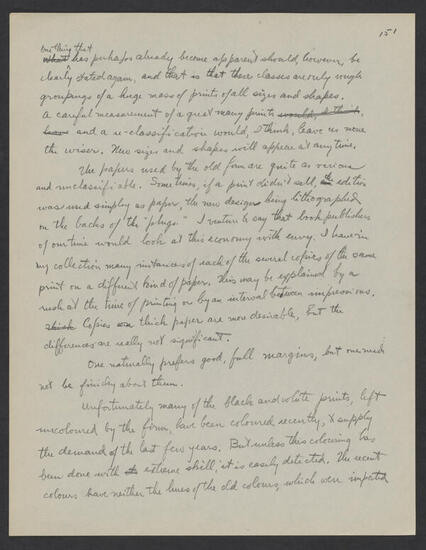 151
one thing that
what has perhaps already become apparent should, however, be
clearly stated again, and that is that these classes are only rough
groupings of a huge mass of prints of all sizes and shapes.
A careful measurement of a great many prints would, I think,
leave and a re-classification would, I think, leave us none
the wiser. New sizes and shapes will appear at any time.
The papers used by the old firm are quite as various
and unclassifiable. Sometimes, if a print didn't sell, the edition
was used simply as paper, the new designs being lithographed
on the backs of the "plugs." I venture to say that book publishers
of our time would look at this economy with envy. I have in
my collection many instances of each of the several copies of the same
print on a different kind of paper. This may be explained by a
rush at the time of printing or by an interval between impressions.
Thick Copies on thick paper are more desirable, but the
differences are really not significant.
One naturally prefers good, full margins, but one must
not be finicky about them.
Unfortunately many of the black and white prints, left
uncoloured by the firm, have been coloured recently, to supply
the demand of the last few years. But unless this colouring has
been done with extreme skill, it is easily detected. The recent
colours have neither the hues of the old colours, which were imported